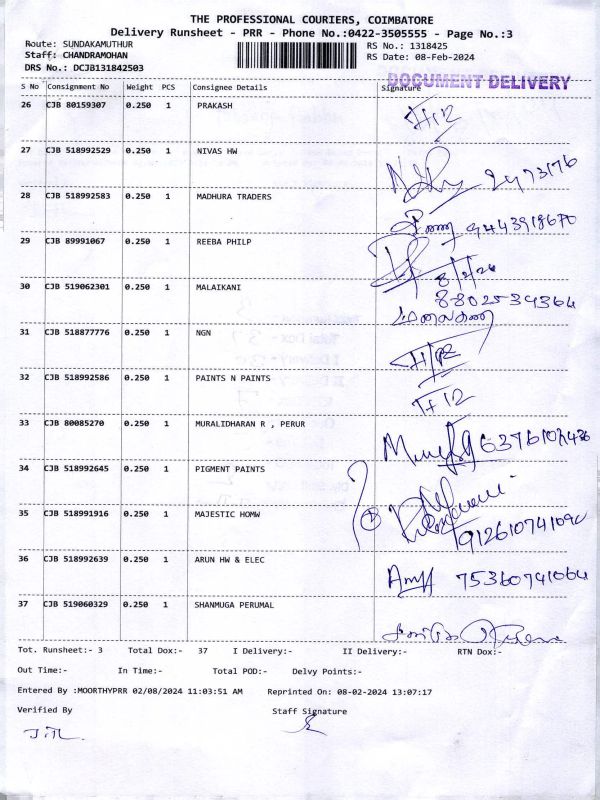 THE PROFESSIONAL COURIERS, COIMBATORE
Delivery Runsheet - PRR - Phone No.:0422-3505555 - Page No.:3
Route: SUNDAKAMUTHUR
Staff: CHANDRAMOHAN
DRS No.: DCJB131842503
RS No.: 1318425
RS Date: 08-Feb-2024
DOCUMENT DELIVERY
S No Consignment No Weight PCS Consignee Details Signature
26 CJB 80159307 0.250 1 PRAKASH
27 CJB 518992529 0.250 1 NIVAS HW
28 CJB 518992583 0.250 1 MADHURA TRADERS 9443918670
29 CJB 89991067 0.250 1 REEBA PHILP
8/2/24
30 CJB 519062301 0.250 1 MALAIKANI 8802534364
மலைகனி
31 CJB 518877776 0.250 1 NGN
32 CJB 518992586 0.250 1 PAINTS N PAINTS
33 CJB 80085270 0.250 1 MURALIDHARAN R , PERUR
34 CJB 518992645 0.250 1 PIGMENT PAINTS
35 CJB 518991916 0.250 1 MAJESTIC HOMW
36 CJB 518992639 0.250 1 ARUN HW & ELEC 75360741064
37 CJB 519060329 0.250 1 SHANMUGA PERUMAL
Tot. Runsheet:- 3 Total Dox:- 37 I Delivery:- II Delivery:- RTN Dox:-
Out Time:- In Time:- Total POD:- Delvy Points:-
Entered By :MOORTHYPRR 02/08/2024 11:03:51 AM Reprinted On: 08-02-2024 13:07:17
Verified By Staff Signature